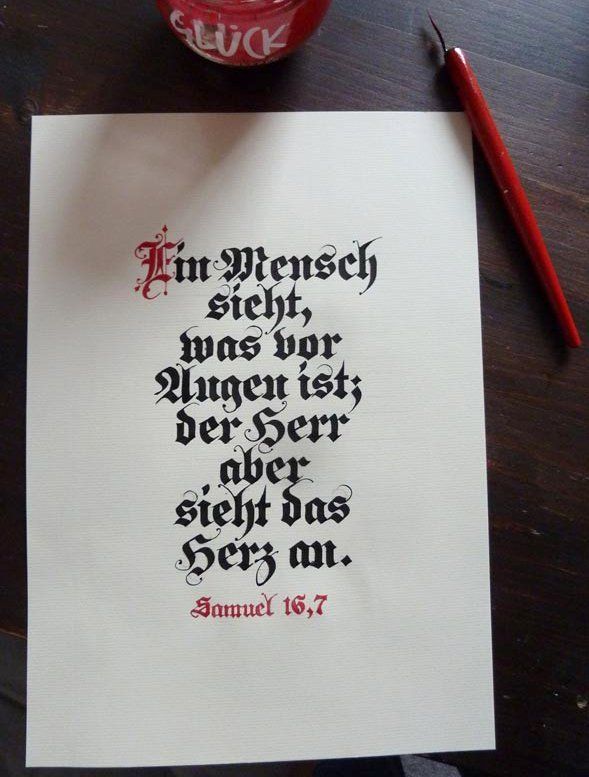 GLÜCK
Ein Mensch
sieht,
was vor
Augen ist;
der Herr
aber
sieht das
Herz an.
Samuel 16,7